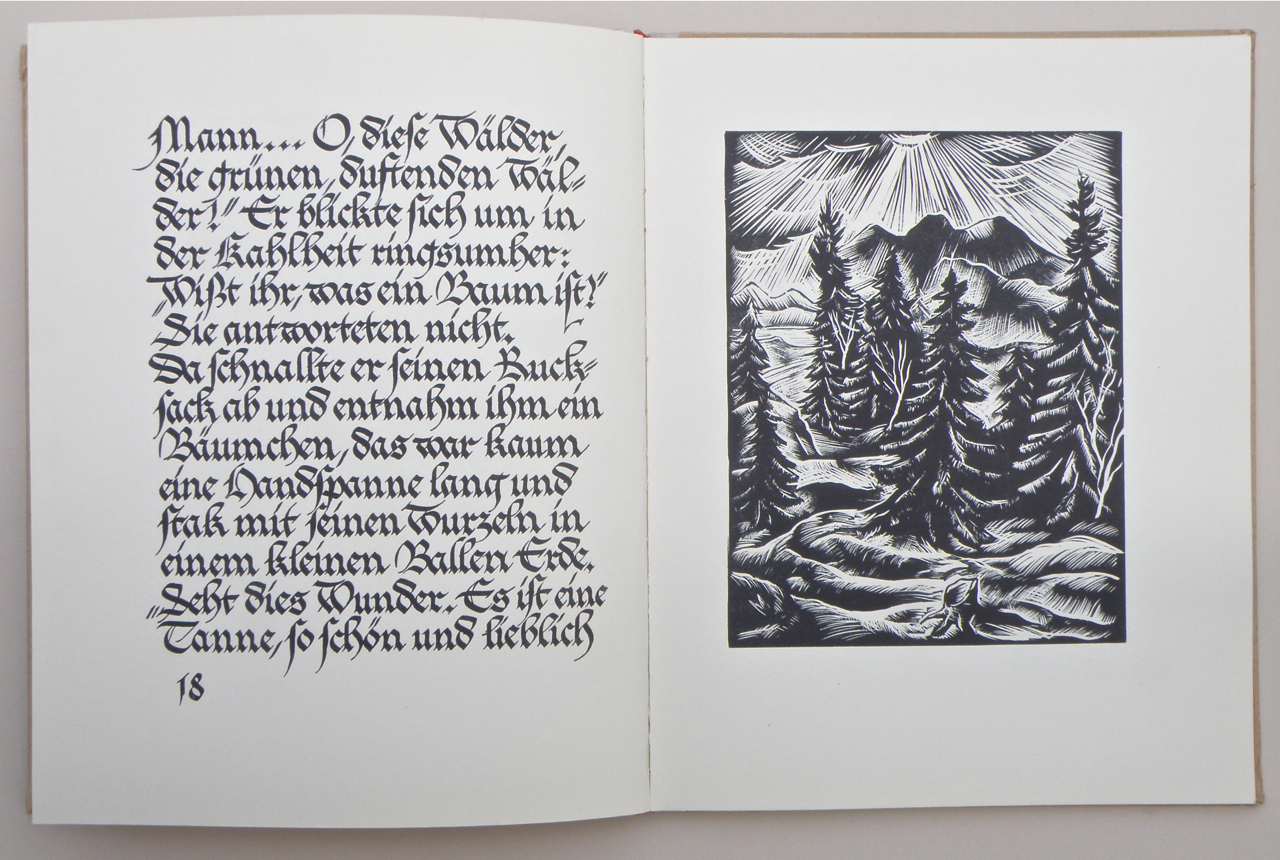 Mann... O, diese Wälder,
die grünen, duftenden Wäl-
der!" Er blickte sich um in
der Kahlheit ringsumher:
„Wißt ihr, was ein Baum ist?"
Sie antworteten nicht.
Da schnallte er seinen Ruck-
sack ab und entnahm ihm ein
Bäumchen, das war kaum
eine Handspanne lang und
stak mit seinen Wurzeln in
einem kleinen Ballen Erde.
„Seht dies Wunder. Es ist eine
Tanne, so schön und lieblich
18